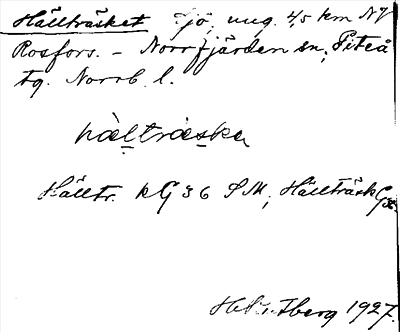 Hällträsket Tjö, ung. 4,5 km NV
Rosfors. - Norrfjärden sn, Piteå
tg. Norrb. l.
hàlträska
Hälltr. kG 36 SM; Hällträsk GK.
1927.